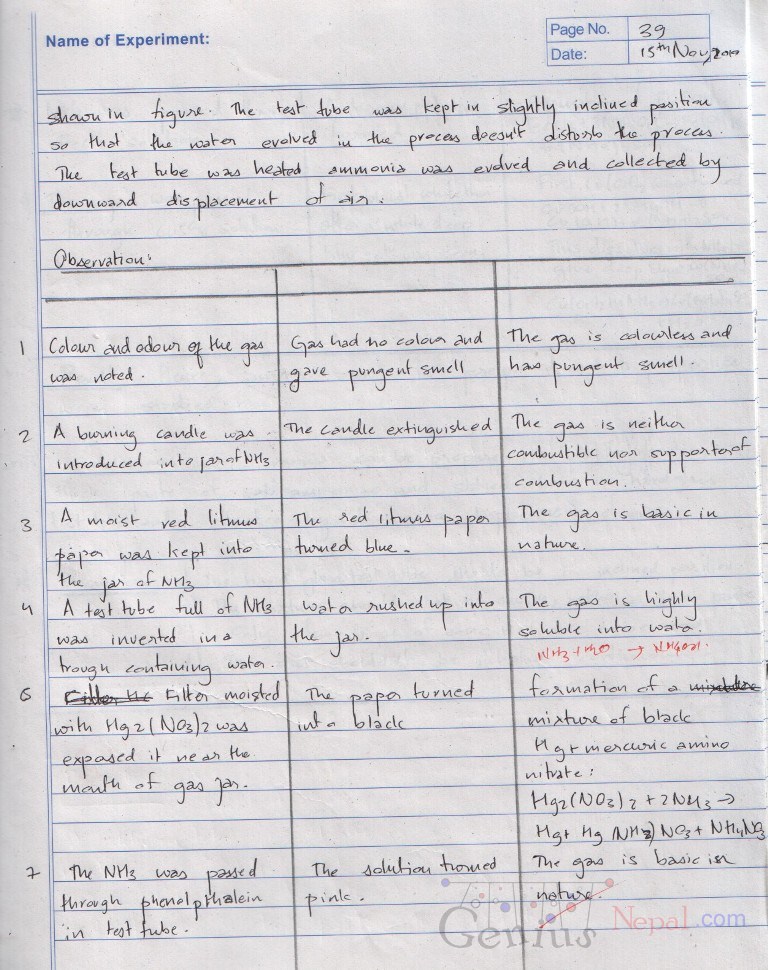 Name of Experiment:
Page No. 39
Date: 15th Nov, 2010
shown in figure. The test tube was kept in slightly inclined position
so that the water evolved in the process doesn't distorb the process.
The test tube was heated ammonia was evolved and collected by
downward displacement of air.
Observation:
1 Colour and odour of the gas
was noted.
Gas had no colour and
gave pungent smell
The gas is colourless and
has pungent smell.
2 A burning candle was
introduced into jar of NH3
The candle extinguished
The gas is neither
combustible nor supporter of
combustion.
3 A moist red litmus
paper was kept into
the jar of NH3
The red litmus paper
turned blue.
The gas is basic in
nature.
4 A test tube full of NH3
was inverted in a
trough containing water.
water rushed up into
the jar.
The gas is highly
soluble into water.
NH3 + H2O → NH4OH.
6 Filter Filter moisted
with Hg2(NO3)2 was
exposed it near the
mouth of gas jar.
The paper turned
into black
formation of a mixture
mixture of black
Hg + mercuric amino
nitrate:
Hg2(NO3)2 + 2NH3 →
Hg + Hg(NH2)NO3 + NH4NO3
7 The NH3 was passed
through phenolpthalein
in test tube.
The solution turned
pink.
The gas is basic in
nature.
Genius Nepal.com